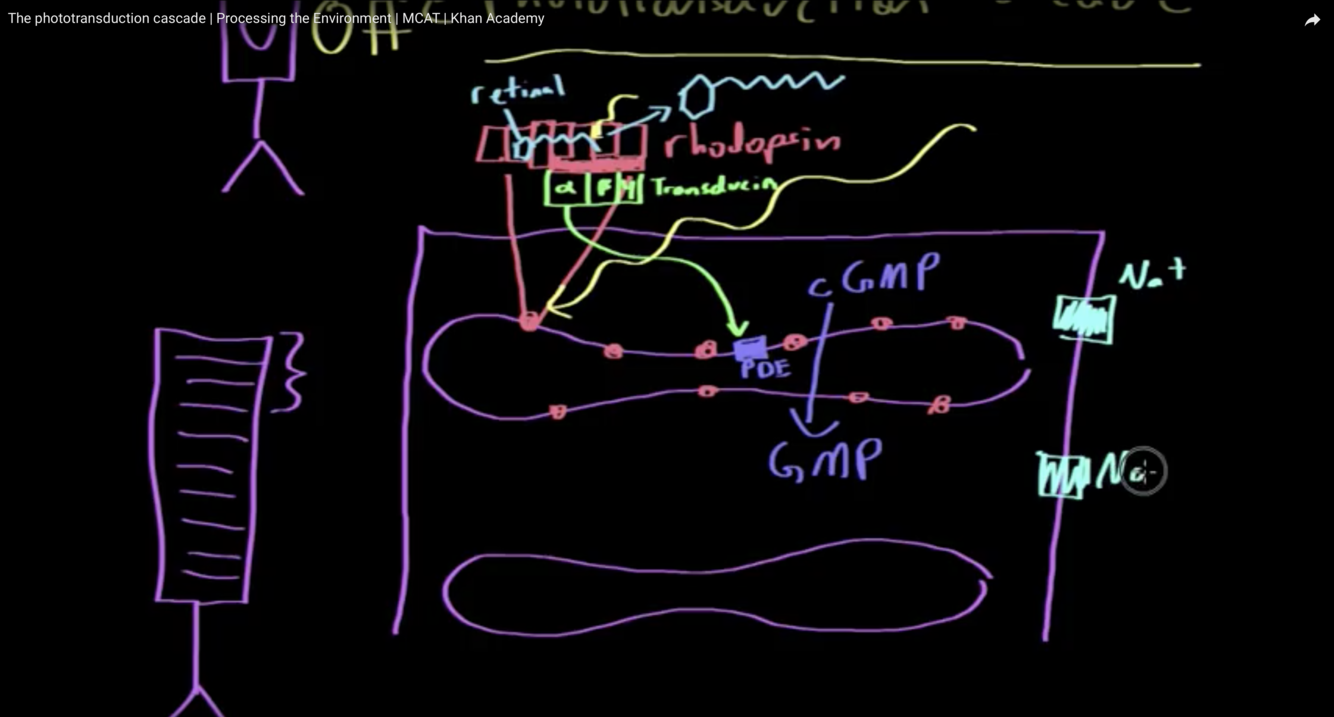 The phototransduction cascade | Processing the Environment | MCAT | Khan Academy
retinal
rhodopsin
α β γ Transducin
cGMP
Na+
PDE
GMP
Na